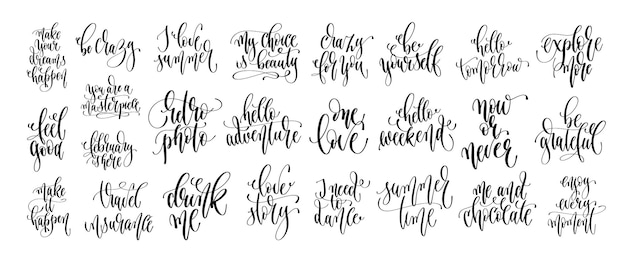 make
your
dreams
happen
be crazy
I love
summer
my choice
is beauty
crazy
for you
be
yourself
hello
tomorrow
explore
more
feel
good
you are a
masterpiece
february
is here
retro
photo
hello
adventure
one
love
hello
weekend
now
or
never
be
grateful
make
it
happen
travel
insurance
drink
me
love
story
I need
to
dance
summer
time
me and
chocolate
enjoy
every
moment